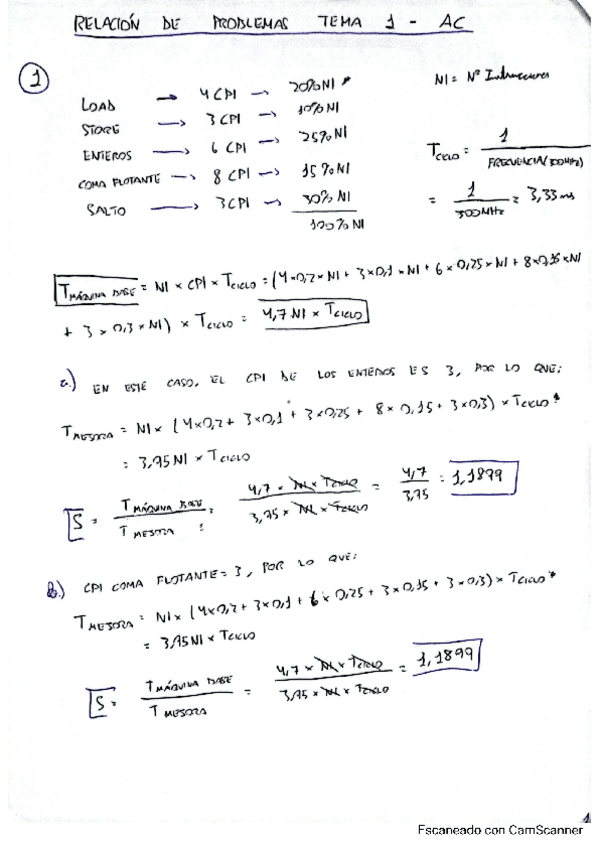 RELACIÓN DE PROBLEMAS TEMA 1 - AC
1
LOAD → 4 CPI → 20% NI
STORE → 3 CPI → 10% NI
ENTEROS → 6 CPI → 25% NI
COMA FLOTANTE → 8 CPI → 15% NI
SALTO → 3 CPI → 30% NI
100% NI
NI = Nº Instrucciones
T CICLO = 1 / FRECUENCIA (300MHz)
= 1 / 300MHz = 3,33 ns
T MÁQUINA BASE = NI × CPI × T CICLO = (4×0,2 × NI + 3×0,1 × NI + 6 × 0,25 × NI + 8×0,15 × NI
+ 3 × 0,3 × NI) × T CICLO = 4,7 NI × T CICLO
a.) EN ESTE CASO, EL CPI DE LOS ENTEROS ES 3, POR LO QUE:
T MEJORA = NI × (4×0,2 + 3×0,1 + 3×0,25 + 8 × 0,15 + 3×0,3) × T CICLO
= 3,95 NI × T CICLO
S = T MÁQUINA BASE / T MEJORA = 4,7 × NI × T CICLO / 3,95 × NI × T CICLO = 4,7 / 3,95 = 1,1899
b.) CPI COMA FLOTANTE = 3, POR LO QUE:
T MEJORA = NI × (4×0,2 + 3×0,1 + 6 × 0,25 + 3 × 0,15 + 3 × 0,3) × T CICLO
= 3,95 NI × T CICLO
S = T MÁQUINA BASE / T MEJORA = 4,7 × NI × T CICLO / 3,95 × NI × T CICLO = 1,1899
1
Escaneado con CamScanner